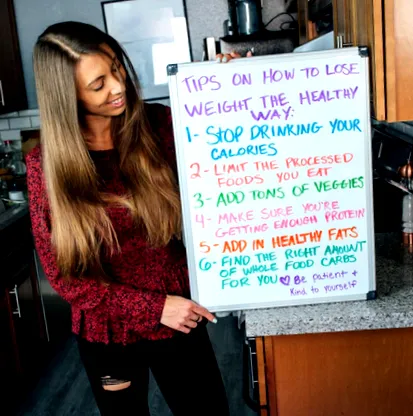 TIPS ON HOW TO LOSE
WEIGHT THE HEALTHY
WAY:
1- STOP DRINKING YOUR
CALORIES
2- LIMIT THE PROCESSED
FOODS YOU EAT
3- ADD TONS OF VEGGIES
4- MAKE SURE YOU'RE
GETTING ENOUGH PROTEIN
5- ADD IN HEALTHY FATS
6- FIND THE RIGHT AMOUNT
OF WHOLE FOOD CARBS
FOR YOU ♥ Be patient +
Kind to yourself